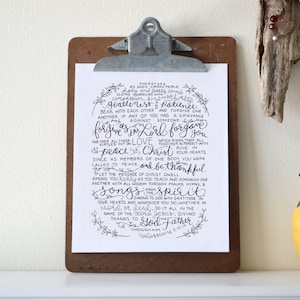 THEREFORE
AS GOD'S CHOSEN PEOPLE,
holy and dearly loved
CLOTHE YOURSELVES WITH
compassion, kindness, humility,
gentleness & patience
BEAR WITH EACH OTHER AND FORGIVE ONE
ANOTHER IF ANY OF YOU HAS A GRIEVANCE
AGAINST SOMEONE
forgive as the Lord forgave you
AND OVER ALL THESE VIRTUES PUT ON LOVE WHICH BINDS THEM ALL TOGETHER IN PERFECT UNITY
LET THE peace of Christ RULE IN YOUR HEARTS
SINCE AS MEMBERS OF ONE BODY YOU WERE
CALLED TO PEACE and be thankful
LET THE MESSAGE OF CHRIST DWELL
AMONG YOU richly AS YOU TEACH AND ADMONISH ONE
ANOTHER WITH ALL WISDOM THROUGH PSALMS, HYMNS, &
SONGS from the spirit
SINGING TO GOD WITH GRATITUDE IN
YOUR HEARTS AND WHATEVER YOU DO, WHETHER IN
word or deed, DO IT ALL IN THE
NAME OF THE Lord Jesus, GIVING
THANKS TO God the Father
THROUGH HIM